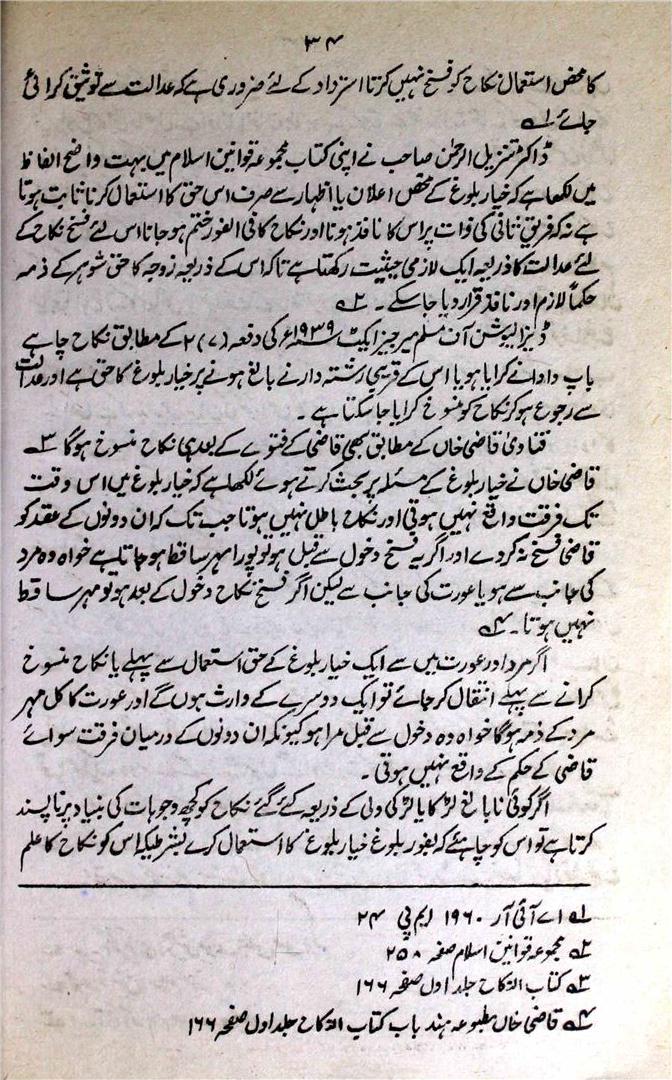 ۳۴
کا محض استعمال نکاح کو فسخ نہیں کرتا استرداد کے لئے ضروری ہے کہ عدالت سے توثیق کرائی
جائے ۱؎
ڈاکٹر تنزیل الرحمٰن صاحب نے اپنی کتاب مجموعہ قوانین اسلام میں بہت واضح الفاظ
میں لکھا ہے کہ خیار بلوغ کے محض اعلان یا اظہار سے صرف اس حق کا استعمال کرنا ثابت ہوتا
ہے نہ کہ فریق ثانی کی ذات پر اس کا نافذ ہونا اور نکاح کا فی الفور ختم ہو جانا اس لئے فسخ نکاح کے
لئے عدالت کا ذریعہ ایک لازمی حیثیت رکھتا ہے تاکہ اس کے ذریعہ زوجہ کا حق شوہر کے ذمہ
حکماً لازم اور نافذ قرار دیا جا سکے ۔ ۲؎
ڈیزالیوشن آن مسلم میرجیز ایکٹ ۱۹۳۹ء کی دفعہ (۷) ۲ کے مطابق نکاح چاہے
باپ دادا نے کرایا ہو یا اس کے قریبی رشتہ دار نے بالغ ہونے پر خیار بلوغ کا حق ہے اور عدالت
سے رجوع ہو کر نکاح کو منسوخ کرایا جا سکتا ہے ۔
فتاوی قاضی خاں کے مطابق بھی قاضی کے فتوے کے بعد ہی نکاح منسوخ ہوگا ۳؎
قاضی خاں نے خیار بلوغ کے مسئلہ پر بحث کرتے ہوئے لکھا ہے کہ خیار بلوغ میں اس وقت
تک فرقت واقع نہیں ہوتی اور نکاح باطل نہیں ہوتا جب تک کہ ان دونوں کے عقد کو
قاضی فسخ نہ کر دے اور اگر یہ فسخ دخول سے قبل ہو تو پورا مہر ساقط ہو جاتا ہے خواہ وہ مرد
کی جانب سے ہو یا عورت کی جانب سے لیکن اگر فسخ نکاح دخول کے بعد ہو تو مہر ساقط
نہیں ہوتا ۔ ۴؎
اگر مرد اور عورت میں سے ایک خیار بلوغ کے حق استعمال سے پہلے یا نکاح منسوخ
کرانے سے پہلے انتقال کر جائے تو ایک دوسرے کے وارث ہوں گے اور عورت کا کل مہر
مرد کے ذمہ ہوگا خواہ وہ دخول سے قبل مرا ہو کیونکہ ان دونوں کے درمیان فرقت سوائے
قاضی کے حکم کے واقع نہیں ہوتی ۔
اگر کوئی نابالغ لڑکا یا لڑکی ولی کے ذریعہ کئے گئے نکاح کو کچھ وجوہات کی بنیاد پر ناپسند
کرتا ہے تو اس کو چاہئے کہ بفور بلوغ خیار بلوغ کا استعمال کرے بشرطیکہ اس کو نکاح کا علم
۱؎ اے آئی آر ۱۹۶۰ ایم پی ۲۴
۲؎ مجموعہ قوانین اسلام صفحہ ۲۵۸
۳؎ کتاب النکاح جلد اول صفحہ ۱۶۶
۴؎ قاضی خاں مطبوعہ ہند باب کتاب النکاح جلد اول صفحہ ۱۶۶